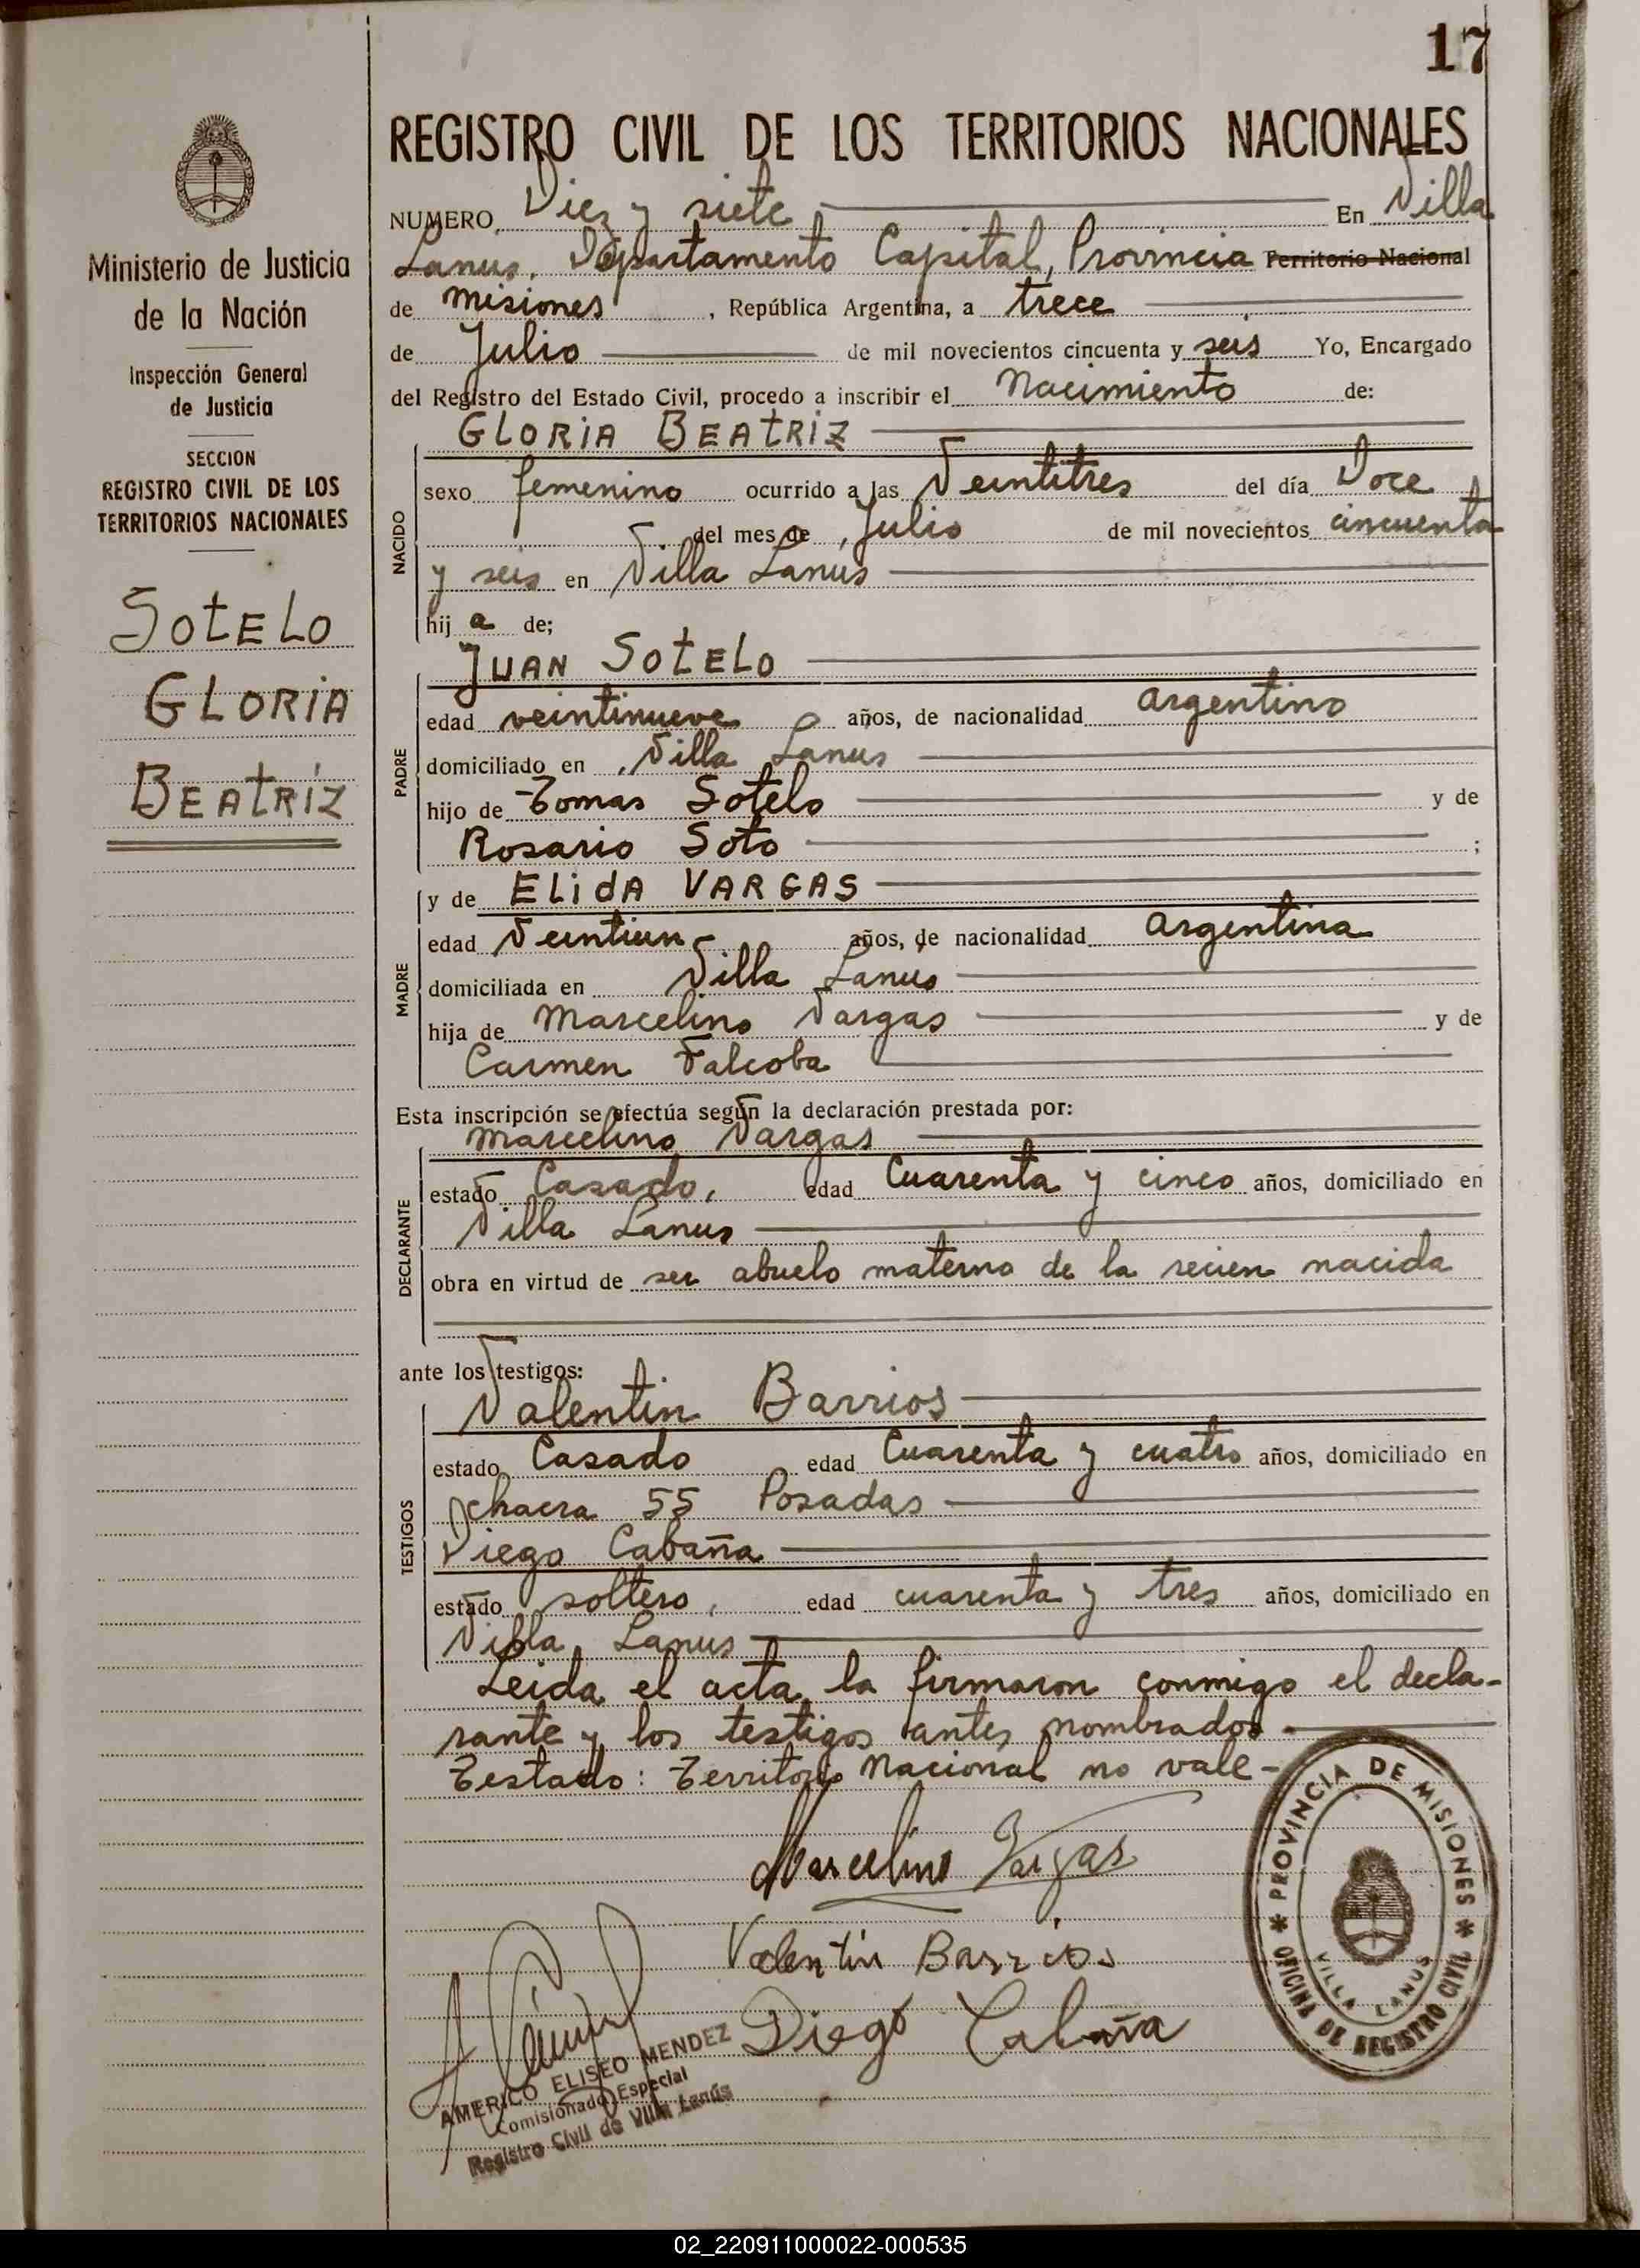 17
REGISTRO CIVIL DE LOS TERRITORIOS NACIONALES
Ministerio de Justicia
de la Nación
Inspección General
de Justicia
SECCION
REGISTRO CIVIL DE LOS
TERRITORIOS NACIONALES
SOtELO
GLORiA
BEAtRíZ
NUMERO Diez y siete En Villa
Lanus, Departamento Capital, Provincia Territorio Nacional
de Misiones, República Argentina, a trece
de Julio de mil novecientos cincuenta y seis Yo, Encargado
del Registro del Estado Civil, procedo a inscribir el Nacimiento de:
GLORiA BEAtRiZ
NACIDO
sexo femenino ocurrido a las Veintitres del día Doce
del mes de Julio de mil novecientos cincuenta
y seis en Villa Lanus
hij a de;
JUAN SOtELO
PADRE
edad veintinueve años, de nacionalidad argentino
domiciliado en Villa Lanus
hijo de Tomas Sotelo y de
Rosario Soto ;
y de ELidA VARGAS
MADRE
edad Veintiun años, de nacionalidad argentina
domiciliada en Villa Lanus
hija de Marcelino Vargas y de
Carmen Falcoba
Esta inscripción se efectúa según la declaración prestada por:
Marcelino Vargas
DECLARANTE
estado Casado, edad Cuarenta y cinco años, domiciliado en
Villa Lanus
obra en virtud de ser abuelo materno de la recien nacida
ante los testigos:
Valentin Barrios
TESTIGOS
estado Casado edad Cuarenta y cuatro años, domiciliado en
chacra 55 Posadas
Diego Cabaña
estado soltero, edad cuarenta y tres años, domiciliado en
Villa Lanus
Leida el acta, la firmaron conmigo el decla-
rante y los testigos antes nombrados.
Testado: Territorio Nacional no vale-
Marcelino Vargas
Valentin Barrios
Diego Cabaña
AMERICO ELISEO MENDEZ
Comisionado Especial
Registro Civil de Villa Lanús
PROVINCIA DE MISIONES
OFICINA DE REGISTRO CIVIL
VILLA LANUS
02_220911000022-000535